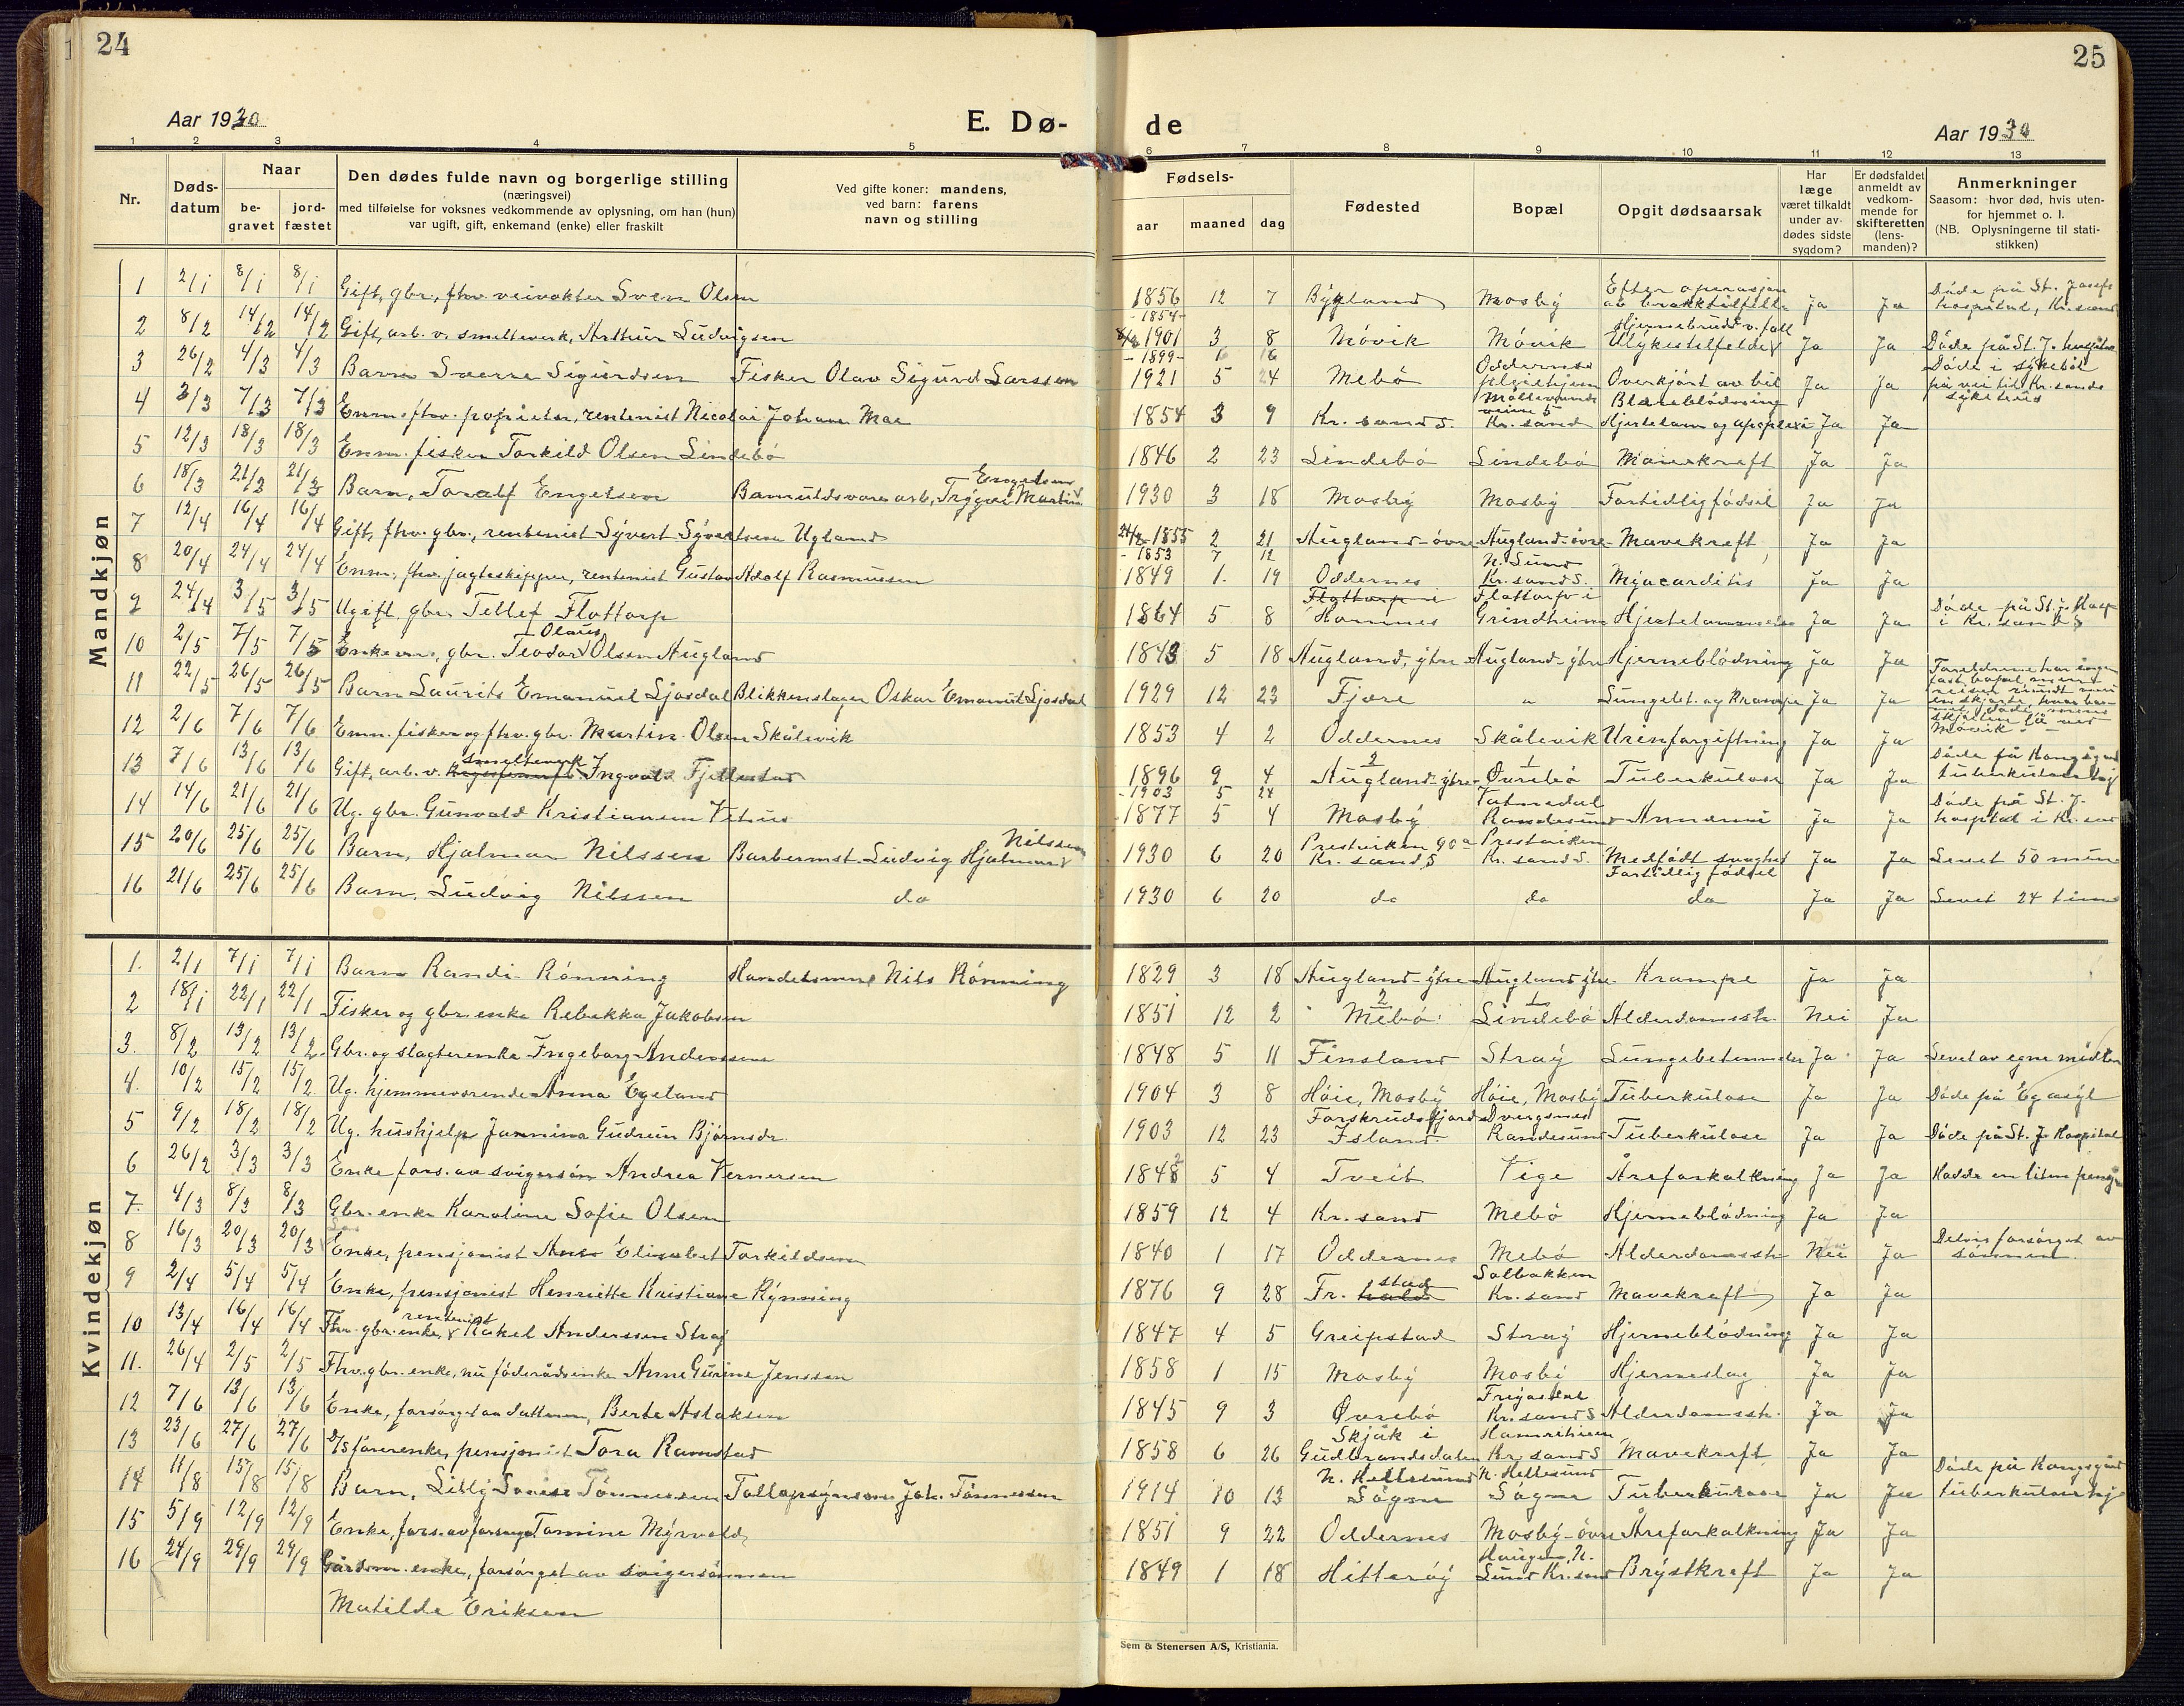 24
Aar 1930
E. Dø-
1 2 3 4 5
Nr.
Døds-
datum
Naar
be-
gravet
jord-
fæstet
Den dødes fulde navn og borgerlige stilling
(næringsvei)
med tilføielse for voksnes vedkommende av oplysning, om han (hun)
var ugift, gift, enkemand (enke) eller fraskilt
Ved gifte koner: mandens,
ved barn: farens
navn og stilling
Mandkjøn
1 2/1 8/1 8/1 Gift, gbr., fhv. veivokter Sven Olsen
2 8/2 14/2 14/2 Gift, arb. v. smelteverk, Arthur Ludvigsen
3 26/2 4/3 4/3 Barn Sverre Sigurdsen Fisker Olav Sigurd Larssen
4 3/3 7/3 7/3 Enm. fhv. proprietær, rentenist Nicolai Johan Moe
5 12/3 18/3 18/3 Enm. fisker Torkild Olsen Lindebö
Engelsen
6 18/3 21/3 21/3 Barn, Toralf Engelsen Bomuldsvarearb, Trygve Martin
7 12/4 16/4 16/4 Gift, fhv. gbr., rentenist Syvert Syvertsen Ugland
8 20/4 24/4 24/4 Enm. fhv. jagteskipper, rentenist Gustav Adolf Rasmussen
9 24/4 3/5 3/5 Ugift gbr. Tellef Flottorp
Olaus
10 2/5 7/5 7/5 Enkem., gbr. Teodor Olsen Augland
11 22/5 26/5 26/5 Barn Laurits Emanuel Ljosdal Blikkenslager Oskar Emanuel Ljosdal
12 2/6 7/6 7/6 Emn. fisker og fhv. gbr. Martin Olsen Skålevik
smelteverk
13 7/6 13/6 13/6 Gift, arb. v. Ingvald Fjellestad
14 14/6 21/6 21/6 Ug. gbr. Gunvald Kristiansen Vehus
Nilssen
15 20/6 25/6 25/6 Barn, Hjalmar Nilssen Barbermst. Ludvig Hjalmar
16 21/6 25/6 25/6 Barn, Ludvig Nilssen do
Kvindekjøn
1. 2/1 7/1 7/1 Barn Randi Rönning Handelsmm Nils Rönning
2 18/1 22/1 22/1 Fisker og gbr. enke Rebekka Jakobsen
3. 8/2 13/2 13/2 Gbr. og slagterenke Ingeborg Anderssen
4. 10/2 15/2 15/2 Ug. hjemmeværende Anna Egeland
5 9/2 18/2 18/2 Ug. hushjelp Jannina Gudrun Björnsdr.
6 26/2 3/3 3/3 Enke fors. av svigersön Andrea Vernersen
7 4/3 8/3 8/3 Gbr. enke Karoline Sofie Olsen
8 16/3 20/3 20/3 Enke, pensjonist Ane Elisabet Torkildsen
9 2/4 5/4 5/4 Enke, pensjonist Henriette Kristiane Rynning
rentenist
10 13/4 16/4 16/4 Fhv. gbr. enke, Rakel Anderssen Stray
11. 26/4 2/5 2/5 Fhv. gbr. enke, nu föderådsenke Anne Gurine Jenssen
12 7/6 13/6 13/6 Enke, forsörget av datteren, Berte Aslaksen
13 23/6 27/6 27/6 D/S förerenke, pensjonist Tora Ramstad
14 11/8 15/8 15/8 Barn, Lilly Lovise Tönnessen Tollopsynsm. Joh. Tönnessen
15 5/9 12/9 12/9 Enke, fors. av Tomine Myrvold
16 24/9 29/9 29/9 Gårdm. enke, forsörget av svigersönnen
Matilde Eriksen
25
de
Aar 1930
6 7 8 9 10 11 12 13
Fødsels-
aar maaned dag
Fødested
Bopæl
Opgit dødsaarsak
Har
læge
været tilkaldt
under av-
dødes sidste
sygdom?
Er dødsfaldet
anmeldt av
vedkom-
mende for
skifteretten
(lens-
manden)?
Anmerkninger
Saasom: hvor død, hvis uten-
for hjemmet o. l.
(NB. Oplysningerne til stati-
stikken)
Efter operasjon Döde på St. Josefs
1856 12 7 Bygland Mosby av brokktilfelle Ja Ja hospital, Kr.sand
-1854- Hjernebrudd v. fall
1901 3 8 Mövik Mövik Ulykkestilfelde Ja Ja Döde på St. J. hospital
-1899- 1 16 Oddernes Döde i sykebil
1921 5 24 Mebö pleiehjem Overkjört av bil Ja Ja på vei til Kr.sands
sykehus
veien 5 Blæreblödning
1854 3 9 Kr. sand S. Kr. sand Hjertelam og apoplexi Ja Ja
1846 2 23 Lindebö Lindebö Mavekreft Ja Ja
1930 3 18 Mosby Mosby Fortidlig födsel Ja Ja
1855 2 21 Augland-övre Augland-övre Mavekreft Ja Ja
-1853 7 12 N. Sund
1849 1. 19 Oddernes Kr. sand S. Myocarditis Ja Ja
Flottorp i Flottorp i
1864 5 8 Homnes Grindheim Hjertelammelse Ja Ja Döde på St. J. Hosp. i Kr. sand S
1843 5 18 Augland, ytre Augland-ytre Hjerneblödning Ja Ja
1929 12 23 Fjære " Lungebet. og Krampe Ja Ja Foreldrene har ingen
fast bopel men
reiser rundt med
en skjöite, hvor bar-
net döde, mens
skjöiten lå ved
Mövik.
1853 4 2 Oddernes Skålevik Urinforgiftning Ja Ja
2 1 Döde på Kongsgård
1896 9 4 Augland-ytre Övrebö Tuberkulose Ja Ja tuberkulosehj
-1903 5 24
1877 5 4 Mosby Randesund Annemi Ja Ja Döde på St. J. hospital i Kr.sand
Prestviken 90a Prestviken
1930 6 20 Kr. sand S Kr. sand S. Medfödt svaghet Ja Ja Levet 50 min
Fortidlig födsel
1930 6 20 do do do Ja Ja Levet 24 timer
1829 3 18 Augland-ytre Augland ytre Krampe Ja Ja
2 1
1851 12 2 Mebö Lindebö Alderdomssv. Nei Ja
1848 5 11 Finsland Stray Lungebetennelse Ja Ja Levet av egne midler
1904 3 8 Höie, Mosby Höie, Mosby Tuberkulose Ja Ja Döde på Eg asyl
Forskrudsfjord Dvergsnes
1903 12 23 Island Randesund Tuberkulose Ja Ja Döde på St. J. Hospital
1848 5 4 Tveit Vige Åreforkalkning Ja Ja Hadde en liten pensj.
1859 12 4 Kr. sand Mebö Hjerneblödning Ja Ja
1840 1 17 Oddernes Mebö Alderdomssv. Nei Ja Delvis forsörget av sönnen
stad Solbakken
1876 9 28 Fr. hald Kr. sand Mavekreft Ja Ja
1847 4 5 Greipstad Stray Hjerneblödning Ja Ja
1858 1 15 Mosby Mosby Hjerneslag Ja Ja
1845 9 3 Övrebö Kr. sand S Alderdomssv. Ja Ja
Skjåk i
1858 6 26 Gudbrandsdalen Kr. sand S Mavekreft Ja Ja
N. Hellesund N. Hellesund Döde på Kongsgård
1914 10 13 Sögne Sögne Tuberkulose Ja Ja tuberkulosehj
1851 9 22 Oddernes Mosby-övre Åreforkalkning Ja Ja
Haugen, N.
1849 1 18 Hitteröy Sund Kr. sand Brystkreft Ja Ja
Sem & Stenersen A/S, Kristiania.